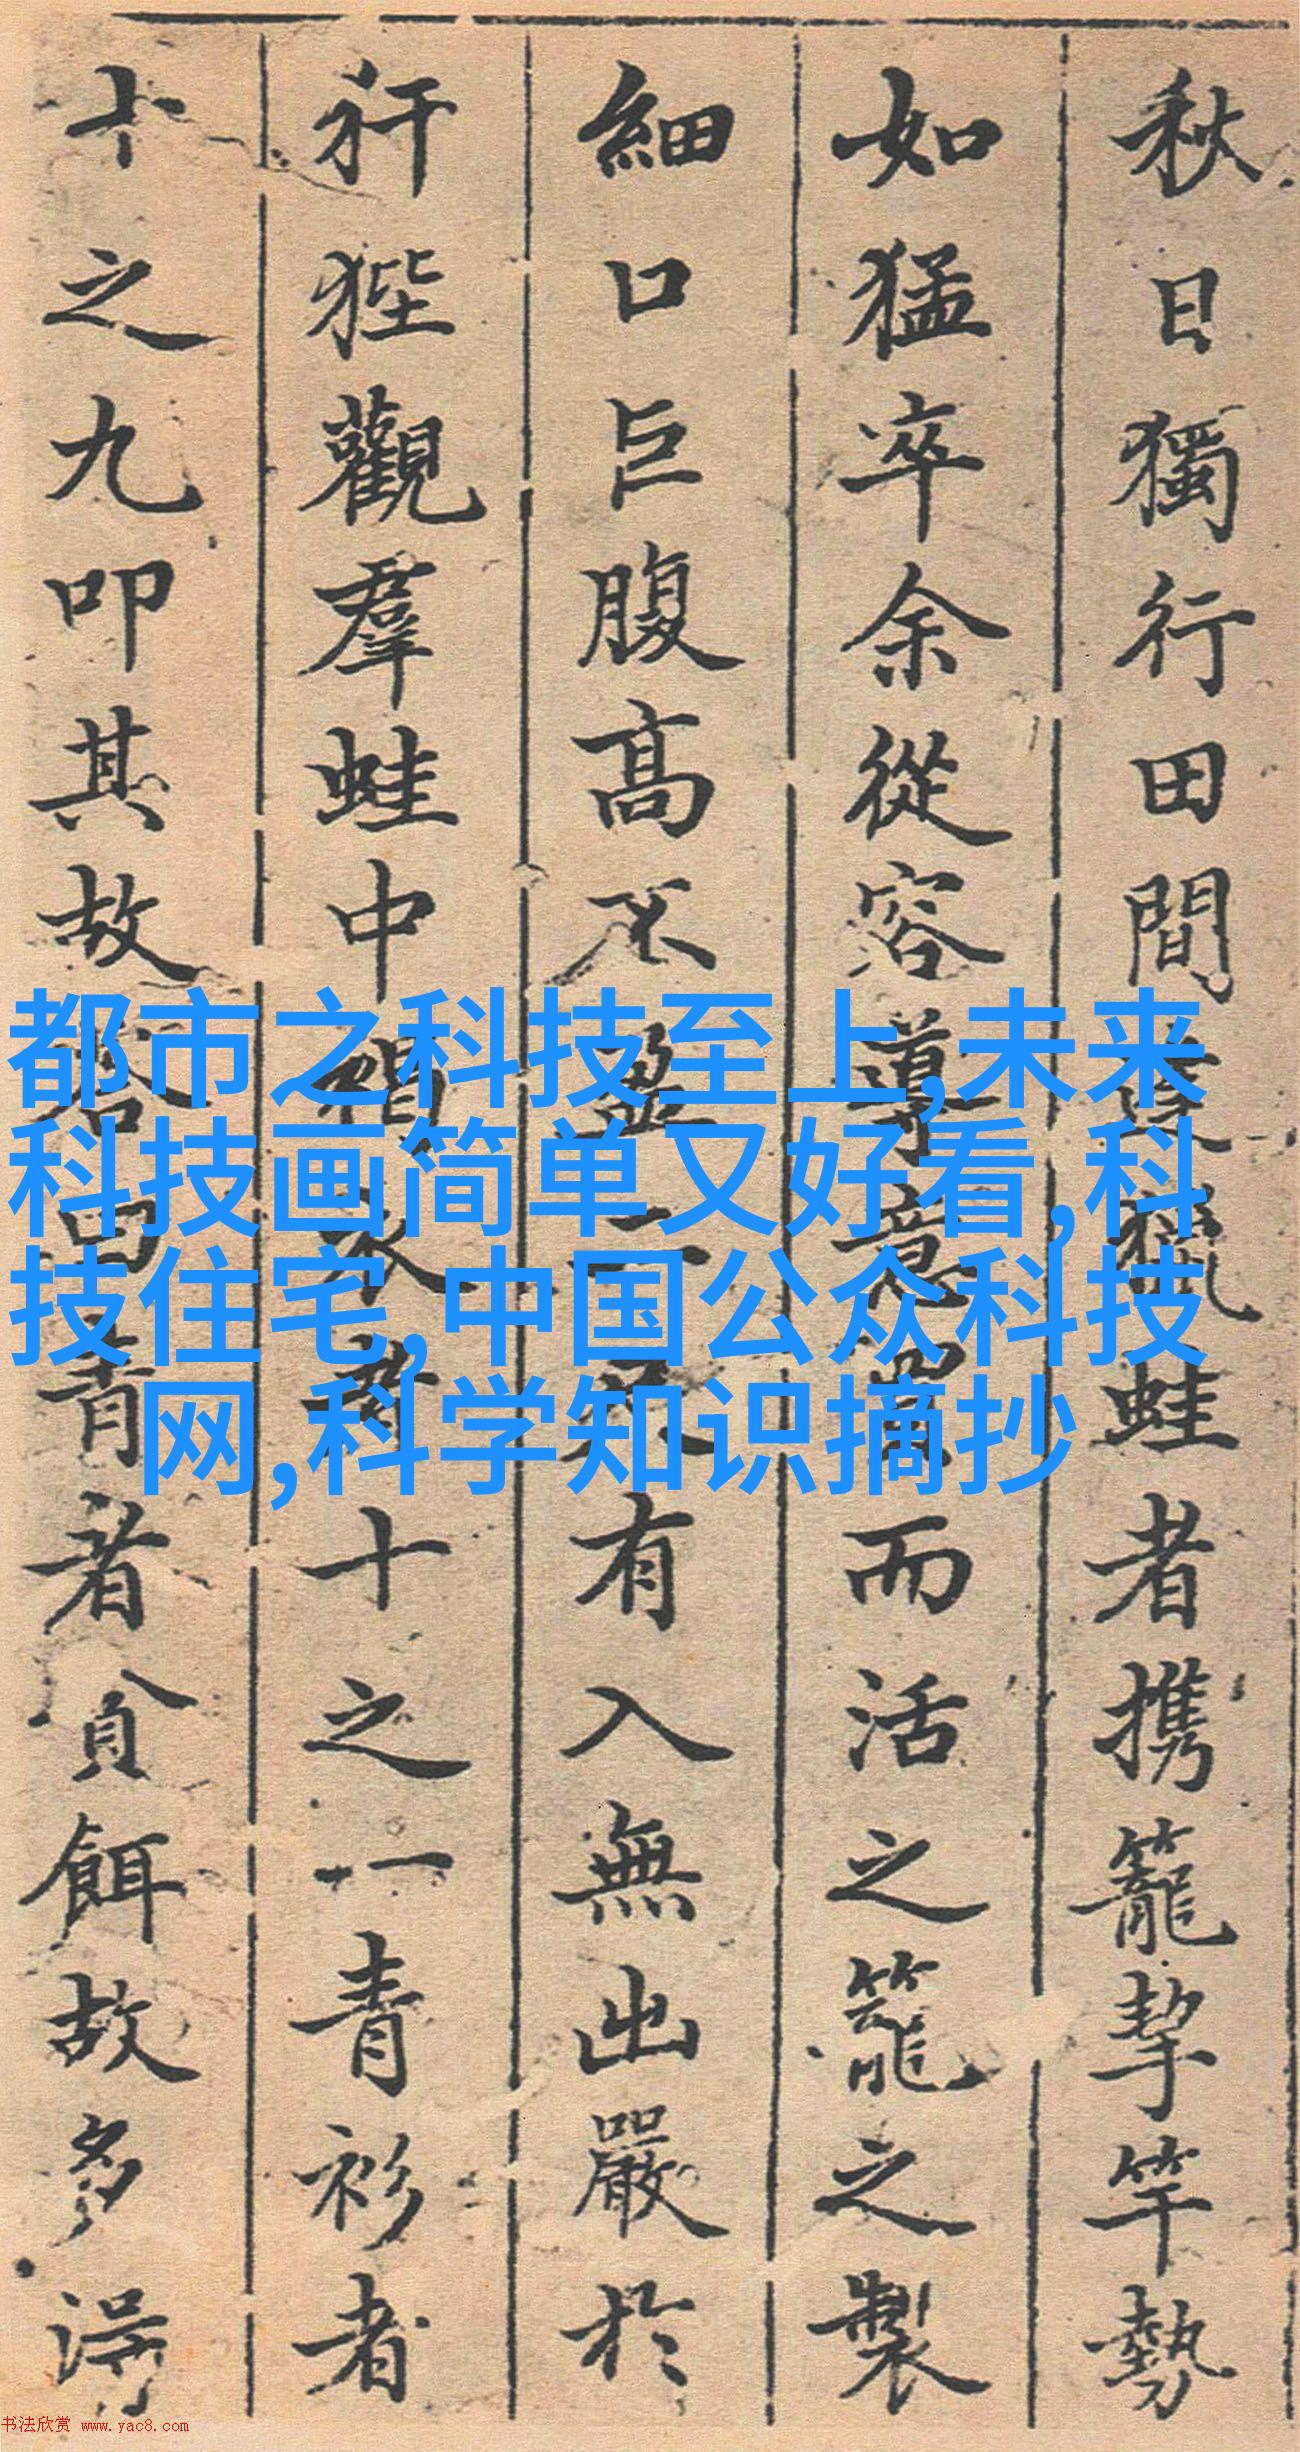 秋日獨行田間逢獵蛙者携籠挈竿勢
如猛卒余從容導意置而活之籠之製
細口巨腹高不盈二尺有入無出嚴於
犴狴觀羣蛙中褐衣者十之一青衫者
十之九叩其故答曰青者貪餌故多得
都市之科技至上,未来
科技画简单又好看,科
技住宅,中国公众科技
网,科学知识摘抄
书法欣赏 www.yac8.com